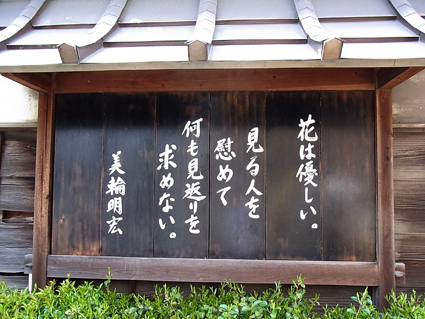 花は優しい。
見る人を
慰めて
何も見返りを
求めない。
美輪明宏